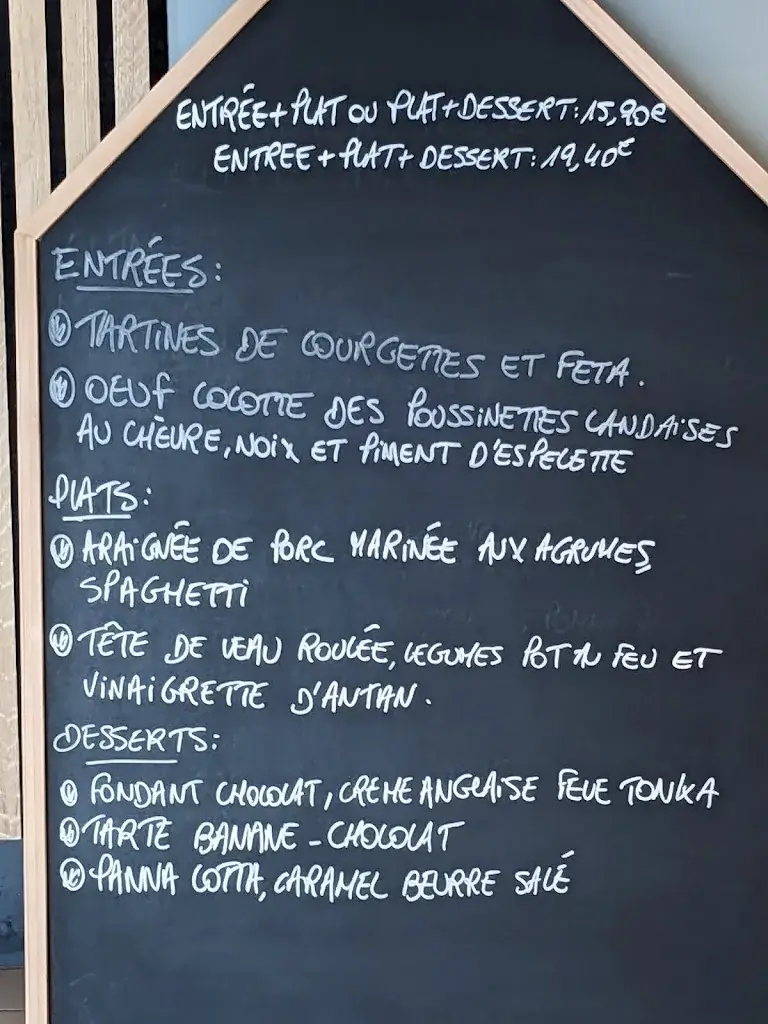 ENTRÉE+PLAT OU PLAT+DESSERT: 15,90€
ENTREE+PLAT+DESSERT: 19,40€
ENTRÉES:
TARTINES DE COURGETTES ET FETA.
OEUF COCOTTE DES POUSSINETTES LANDAISES
AU CHÈVRE, NOIX ET PIMENT D'ESPELETTE
PLATS:
ARAIGNÉE DE PORC MARINÉE AUX AGRUMES,
SPAGHETTI
TÊTE DE VEAU ROULÉE, LEGUMES POT AU FEU ET
VINAIGRETTE D'ANTAN.
DESSERTS:
FONDANT CHOCOLAT, CREME ANGLAISE FEVE TONKA
TARTE BANANE - CHOCOLAT
PANNA COTTA, CARAMEL BEURRE SALÉ